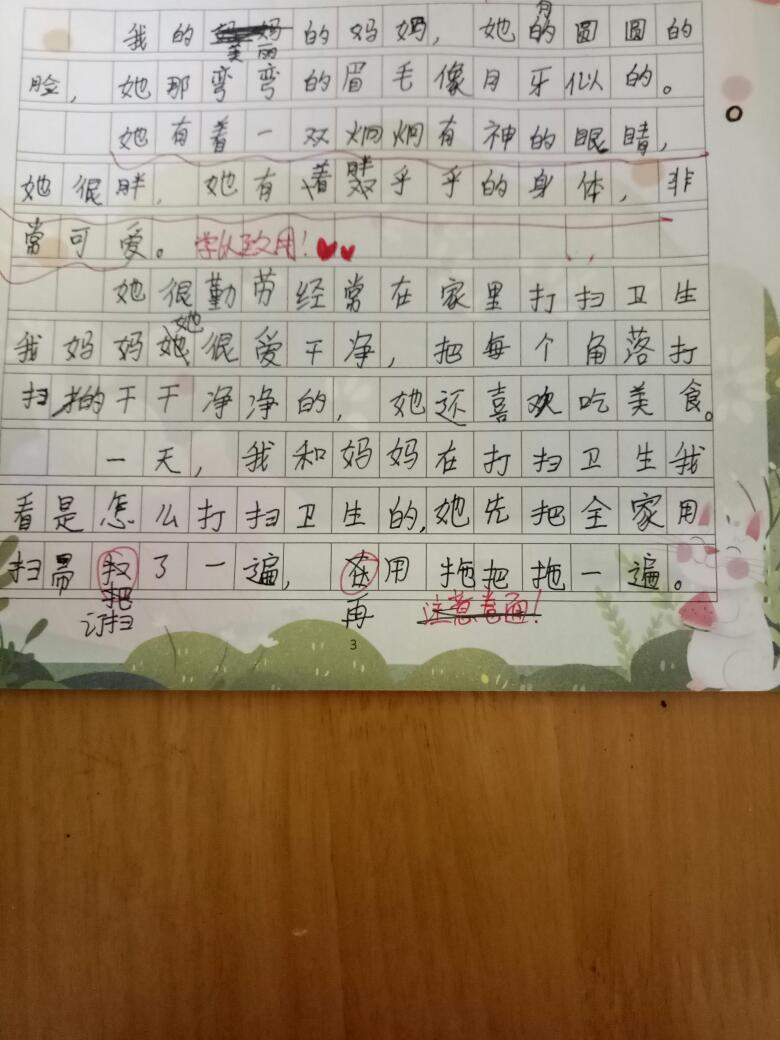 我的美丽的妈妈，她有的圆圆的
脸，她那弯弯的眉毛像月牙似的。
她有着一双炯炯有神的眼睛，
她很胖，她有着胖乎乎的身体，非
常可爱。学以致用！
她很勤劳经常在家里打扫卫生
我妈妈她很爱干净，把每个角落打
扫的干干净净的，她还喜欢吃美食。
一天，我和妈妈在打扫卫生我
看是怎么打扫卫生的，她先把全家用
扫帚扠了一遍，在用拖把拖一遍。
订扫把 再 注意卷面！
3